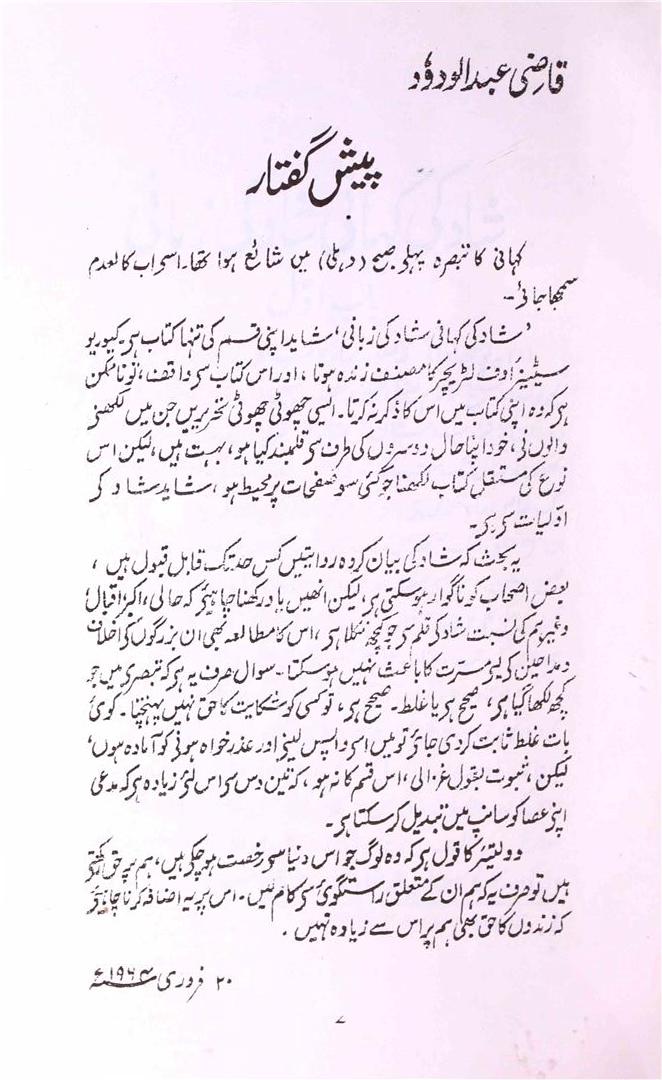 قاضی عبدالودود
پیش گفتار
کہانی کا تبصرہ پہلی صبح (دہلی) میں شایع ہوا تھا۔ اسی اب کالعدم
سمجھا جائی۔
’شاد کی کہانی شاد کی زبانی‘ شاید اپنی قسم کی تنہا کتاب ہی۔ کیوریو
سیٹیز اوف لٹریچر کا مصنف زندہ ہوتا، اور اس کتاب سی واقف، تو ناممکن
ہی کہ وہ اپنی کتاب میں اس کا ذکر نہ کرتا۔ ایسی چھوٹی چھوٹی تحریریں جن میں لکھنی
والوں نی، خود اپنا حال دوسروں کی طرف سی قلمبند کیا ہو، بہت ہیں، لیکن اس
نوع کی مستقل کتاب لکھنا جو کئی سو صفحات پر محیط ہو، شاید شاد کی
اولیات سی ہی۔
یہ بحث کہ شاد کی بیان کردہ روایتیں کس حد تک قابل قبول ہیں،
بعض اصحاب کو ناگوار ہو سکتی ہی، لیکن انھیں یاد رکھنا چاہئی کہ حالی، اکبر اقبال
وغیرہم کی نسبت شاد کی قلم سی جو کچھ نکلا ہی، اس کا مطالعہ بھی ان بزرگوں کی اخلاف
و مداحین کی لیی مسرت کا باعث نہیں ہو سکتا۔ سوال صرف یہ ہی کہ تبصری میں جو
کچھ لکھا گیا ہی، صحیح ہی یا غلط۔ صحیح ہی، تو کسی کو شکایت کا حق نہیں پہنچتا۔ کوئی
بات غلط ثابت کر دی جائی تو میں اسی واپس لینی اور عذر خواہ ہونی کو آمادہ ہوں،
لیکن، ثبوت بقول غزالی، اس قسم کا نہ ہو، کہ تین دس سی اس لئی زیادہ ہی کہ مدعی
اپنی عصا کو سانپ میں تبدیل کر سکتا ہی۔
وولٹیر کا قول ہی کہ وہ لوگ جو اس دنیا سی رخصت ہو چکی ہیں، ہم پر حق رکھتی
ہیں تو صرف یہ کہ ہم ان کے متعلق راستگوئی سی کام لیں۔ اس پر یہ اضافہ کرنا چاہئی
کہ زندوں کا حق بھی ہم پر اس سے زیادہ نہیں۔
۲۰ فروری ۱۹۶۴ء
۷